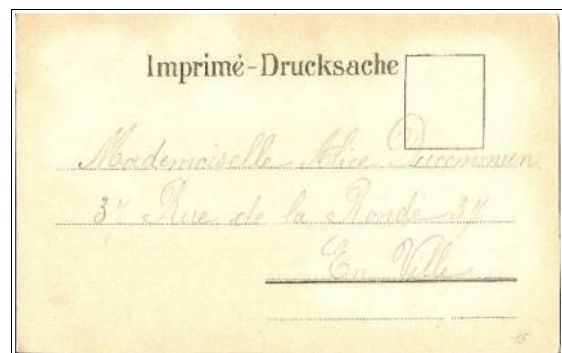 Imprimé-Drucksache
Mademoiselle Alice Ducommun
37 Rue de la Ronde 37
En Ville
15